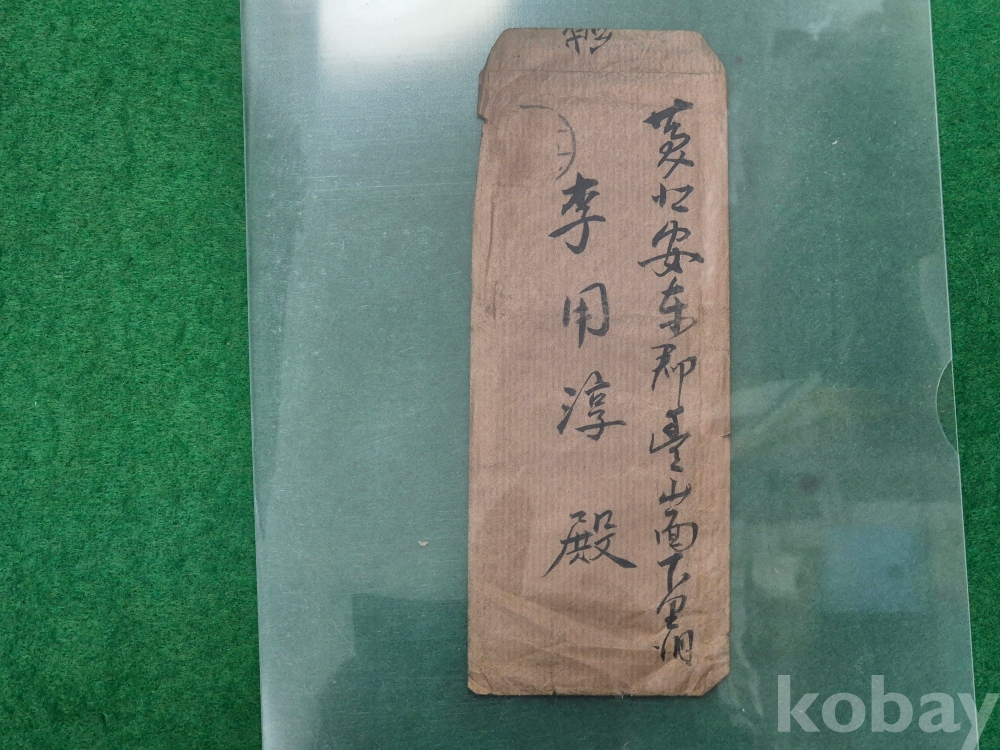 慶北安東郡豊山面下里洞
李用淳殿
kobay